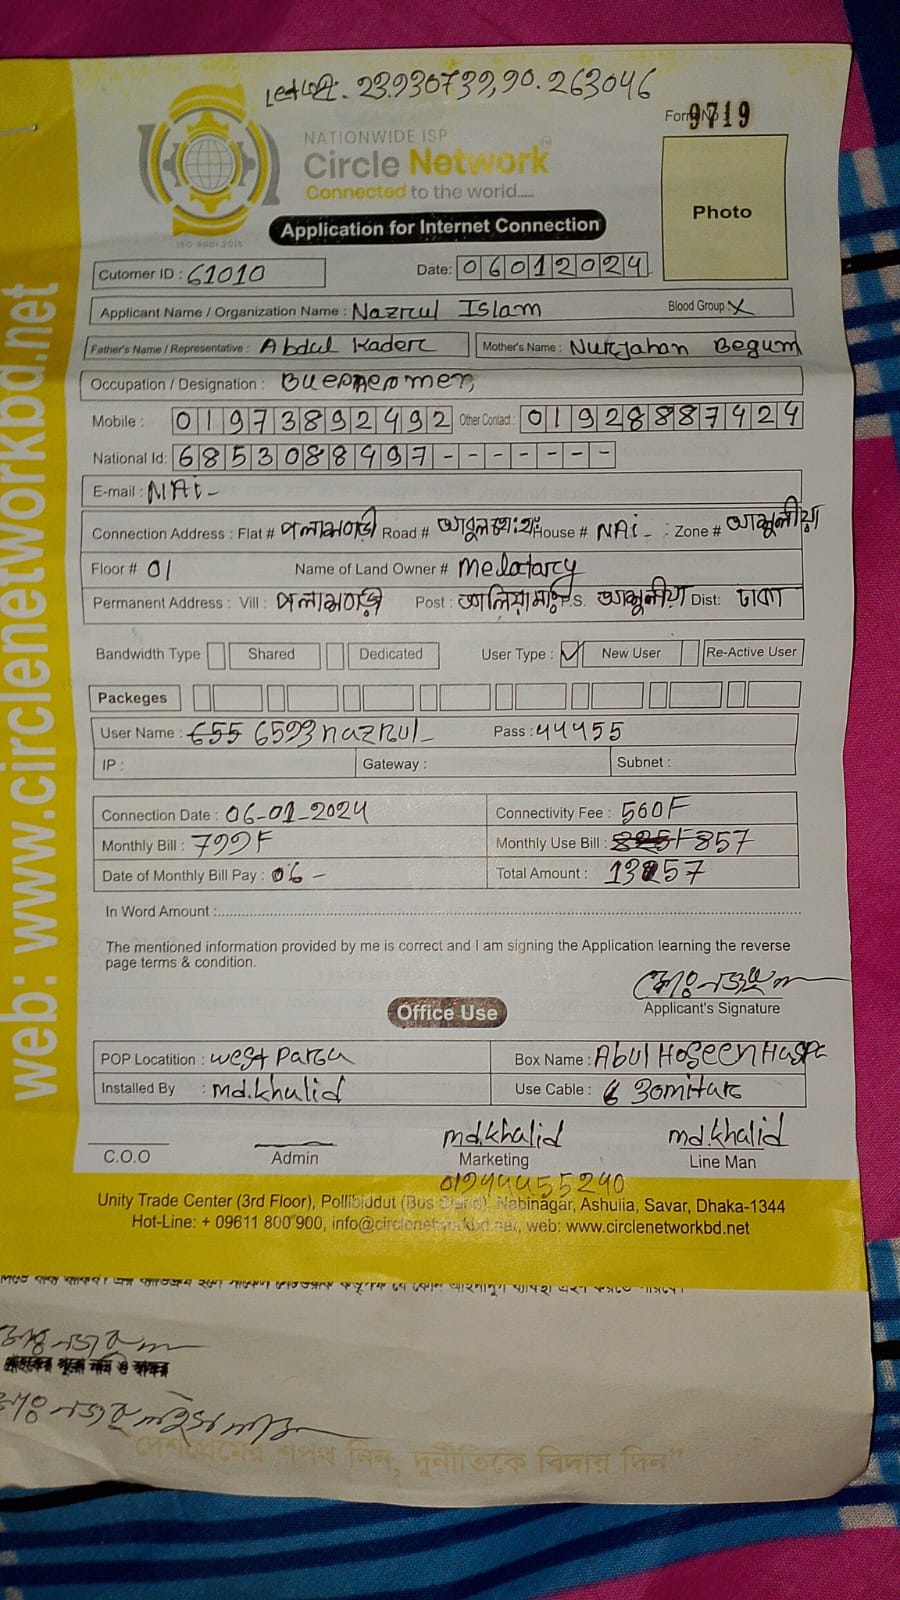 23.930739,90.263046
Form No 9719
NATIONWIDE ISP
Circle Network
Connected to the world.....
ISO 9001:2015
Application for Internet Connection
Photo
Cutomer ID : 61010 Date: 06012024
Applicant Name / Organization Name : Nazrul Islam Blood Group : X
Father's Name / Representative : Abdul Kader Mother's Name : Nurjahan Begum
Occupation / Designation :
Mobile : 01973892492 Other Contact : 01928887424
National Id: 6853088497-------
E-mail : NAi-
Connection Address : Flat # পলাশবাড়ী Road # House # NAi - Zone # আশুলীয়া
Floor # 01 Name of Land Owner #
Permanent Address : Vill : পলাশবাড়ী Post : P.S. আশুলীয়া Dist: ঢাকা
Bandwidth Type Shared Dedicated User Type : ✓ New User Re-Active User
Packeges
User Name : 655 6593nazrul_ Pass : 44455
IP : Gateway : Subnet :
Connection Date : 06-01-2024 Connectivity Fee : 500F
Monthly Bill : 799F Monthly Use Bill : 857
Date of Monthly Bill Pay : 06 - Total Amount : 1357
In Word Amount :
The mentioned information provided by me is correct and I am signing the Application learning the reverse
page terms & condition.
Applicant's Signature
Office Use
POP Locatition : west Para Box Name : Abul Hoseen
Installed By : md.khalid Use Cable : 30mitar
md.khalid md.khalid
C.O.O Admin Marketing Line Man
01944455240
Unity Trade Center (3rd Floor), Pollibiddut (Bus Stand), Nabinagar, Ashulia, Savar, Dhaka-1344
Hot-Line: + 09611 800 900, info@circlenetworkbd.net, web: www.circlenetworkbd.net
web: www.circlenetworkbd.net
"দেশপ্রেমের শপথ নিন, দুর্নীতিকে বিদায় দিন"